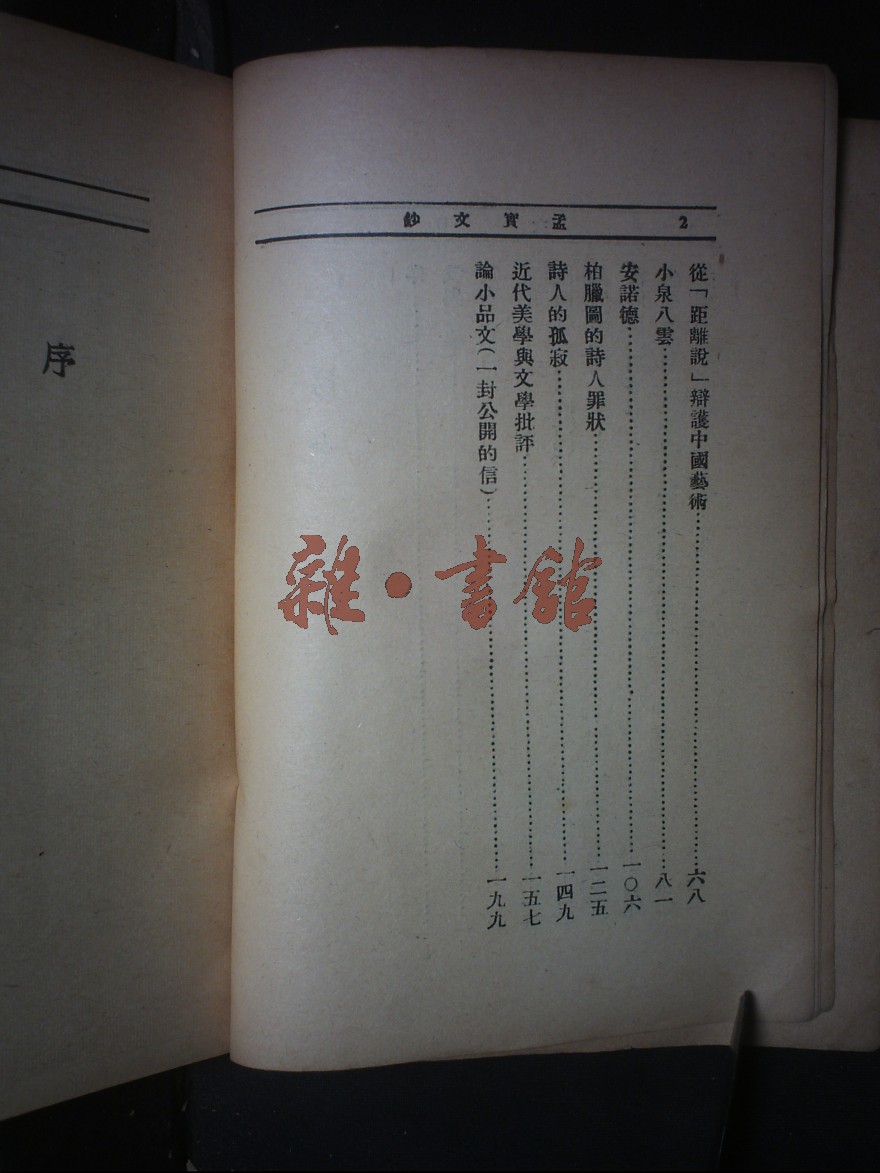 2 孟實文鈔
從「距離說」辯護中國藝術……六八
小泉八雲……八一
安諾德……一〇六
柏臘圖的詩人罪狀……一二五
詩人的孤寂……一四九
近代美學與文學批評……一五七
論小品文(一封公開的信)……一九九
序
雜·書館